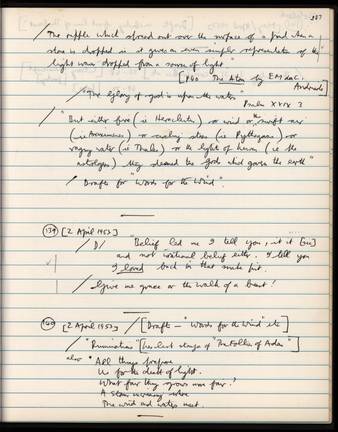 287
/ "The ripple which spread out over the surface of a pond when a
stone is dropped in it gives an even simpler representation of the
light waves dropped from a source of light."
[P60 The Atom by E.N. da C.
Andrade]
/ "The glory of god is upon the waters"
Psalm XXIX 3
/ "But either fire (ie Heraclitus) or wind or the swift air
(ie Anaximenes) or circling stars (ie Pythagoras) or
raging water (ie Thales) or the lights of heaven (ie the
astrologers) they deemed the gods which govern the earth"
/ Drafts for "Words for the Wind".
(139) [2 April 1953]
/ D/ "Belief led me I tell you, it it [sic]
and not rational belief either. I tell you
I loved back in that snake pit.
/ Give me grace or the walk of a beast!
(140) [2 April 1953] / [Drafts – "Words for the Wind" etc]
/ "Ruminations" [
also "All things
for the death of light.
What fair thing grows more fair?
A stone
The wind and water meet.